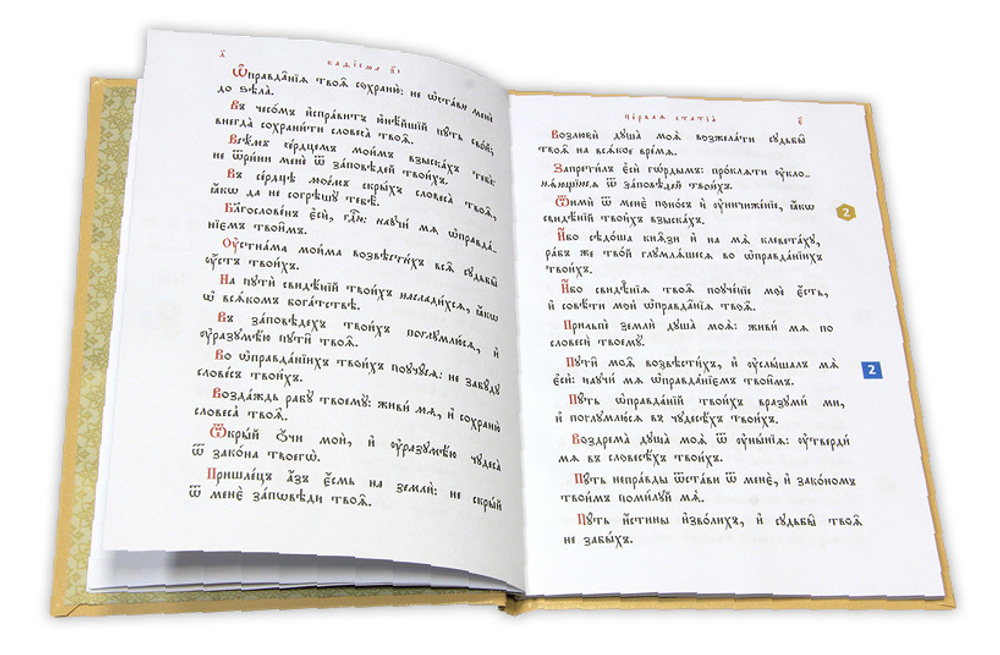 д
каѳісма з҃і
Ѡ҆правда̑нїѧ твоѧ̑ сохраню̀: не ѡ҆ста́ви менѐ
до ѕѣла̀.
Въ чесо́мъ и҆спра́витъ ю҆нѣ́йшїй пу́ть сво́й;
внегда̀ сохрани́ти словеса̀ твоѧ̑.
Всѣ́мъ се́рдцемъ мои́мъ взыска́хъ тебѐ:
не ѿри́ни менѐ ѿ за́повѣдей твои́хъ.
Въ се́рдцѣ мое́мъ скры́хъ словеса̀ твоѧ̑,
ꙗ҆́кѡ да не согрѣшу̀ тебѣ̀.
Благослове́нъ є҆сѝ, гдⷭ҇и: научи́ мѧ ѡ҆правда-
нїємъ твои̑мъ.
Оу҆стна́ма мои́ма возвѣсти́хъ всѧ̑ судьбы̑
оу҆́стъ твои́хъ.
На путѝ свидѣ́нїй твои́хъ наслади́хсѧ, ꙗ҆́кѡ
ѡ҆ всѧ́комъ бога́тствѣ.
Въ за́повѣдехъ твои́хъ поглумлю́сѧ, и҆
оу҆разумѣ́ю пути̑ твоѧ̑.
Во ѡ҆правда́нїихъ твои́хъ поучу́сѧ: не забу́ду
слове́съ твои́хъ.
Возда́ждь рабу̀ твоему̀: живи́ мѧ, и҆ сохраню̀
словеса̀ твоѧ̑.
Ѿкры́й ѻ҆́чи моѝ, и҆ оу҆разумѣ́ю чудеса̀
ѿ зако́на твоегѡ̀.
Пришле́цъ а҆́зъ є҆́смь на землѝ: не скры́й
ѿ менѐ за́пѡвѣди твоѧ̑.
пе́рваѧ статїа̀
є҃
Возлюбѝ душа̀ моѧ̀ возжела́ти судьбы̑
твоѧ̑ на всѧ́кое вре́мѧ.
Запрети́лъ є҆сѝ гѡ́рдымъ: про́клѧти оу҆кло-
нѧ́ющїисѧ ѿ за́повѣдей твои́хъ.
Ѿимѝ ѿ менѐ поно́съ и҆ оу҆ничиже́нїе, ꙗ҆́кѡ
свидѣ́нїй твои́хъ взыска́хъ.
2
И҆́бо сѣдо́ша кнѧ̑зи и҆ на мѧ̀ клевета́ху,
ра́бъ же тво́й глумлѧ́шесѧ во ѡ҆правда́нїихъ
твои́хъ.
И҆́бо свидѣ̑нїѧ твоѧ̑ поуче́нїе моѐ є҆́сть,
и҆ совѣ́ти моѝ ѡ҆правда̑нїѧ твоѧ̑.
Прильпѐ землѝ душа̀ моѧ̀: живи́ мѧ по
словесѝ твоему̀.
Пути̑ моѧ̑ возвѣсти́хъ, и҆ оу҆слы́шалъ мѧ̀
є҆сѝ: научи́ мѧ ѡ҆правда́нїємъ твои̑мъ.
2
Пу́ть ѡ҆правда́нїй твои́хъ вразуми́ ми,
и҆ поглумлю́сѧ въ чудесѣ́хъ твои́хъ.
Воздрема̀ душа̀ моѧ̀ ѿ оу҆ны́нїѧ: оу҆твердѝ
мѧ въ словесѣ́хъ твои́хъ.
Пу́ть непра́вды ѿста́ви ѿ менѐ, и҆ зако́номъ
твои́мъ поми́луй мѧ̀.
Пу́ть и҆́стины и҆зво́лихъ, и҆ судьбы̑ твоѧ̑
не забы́хъ.